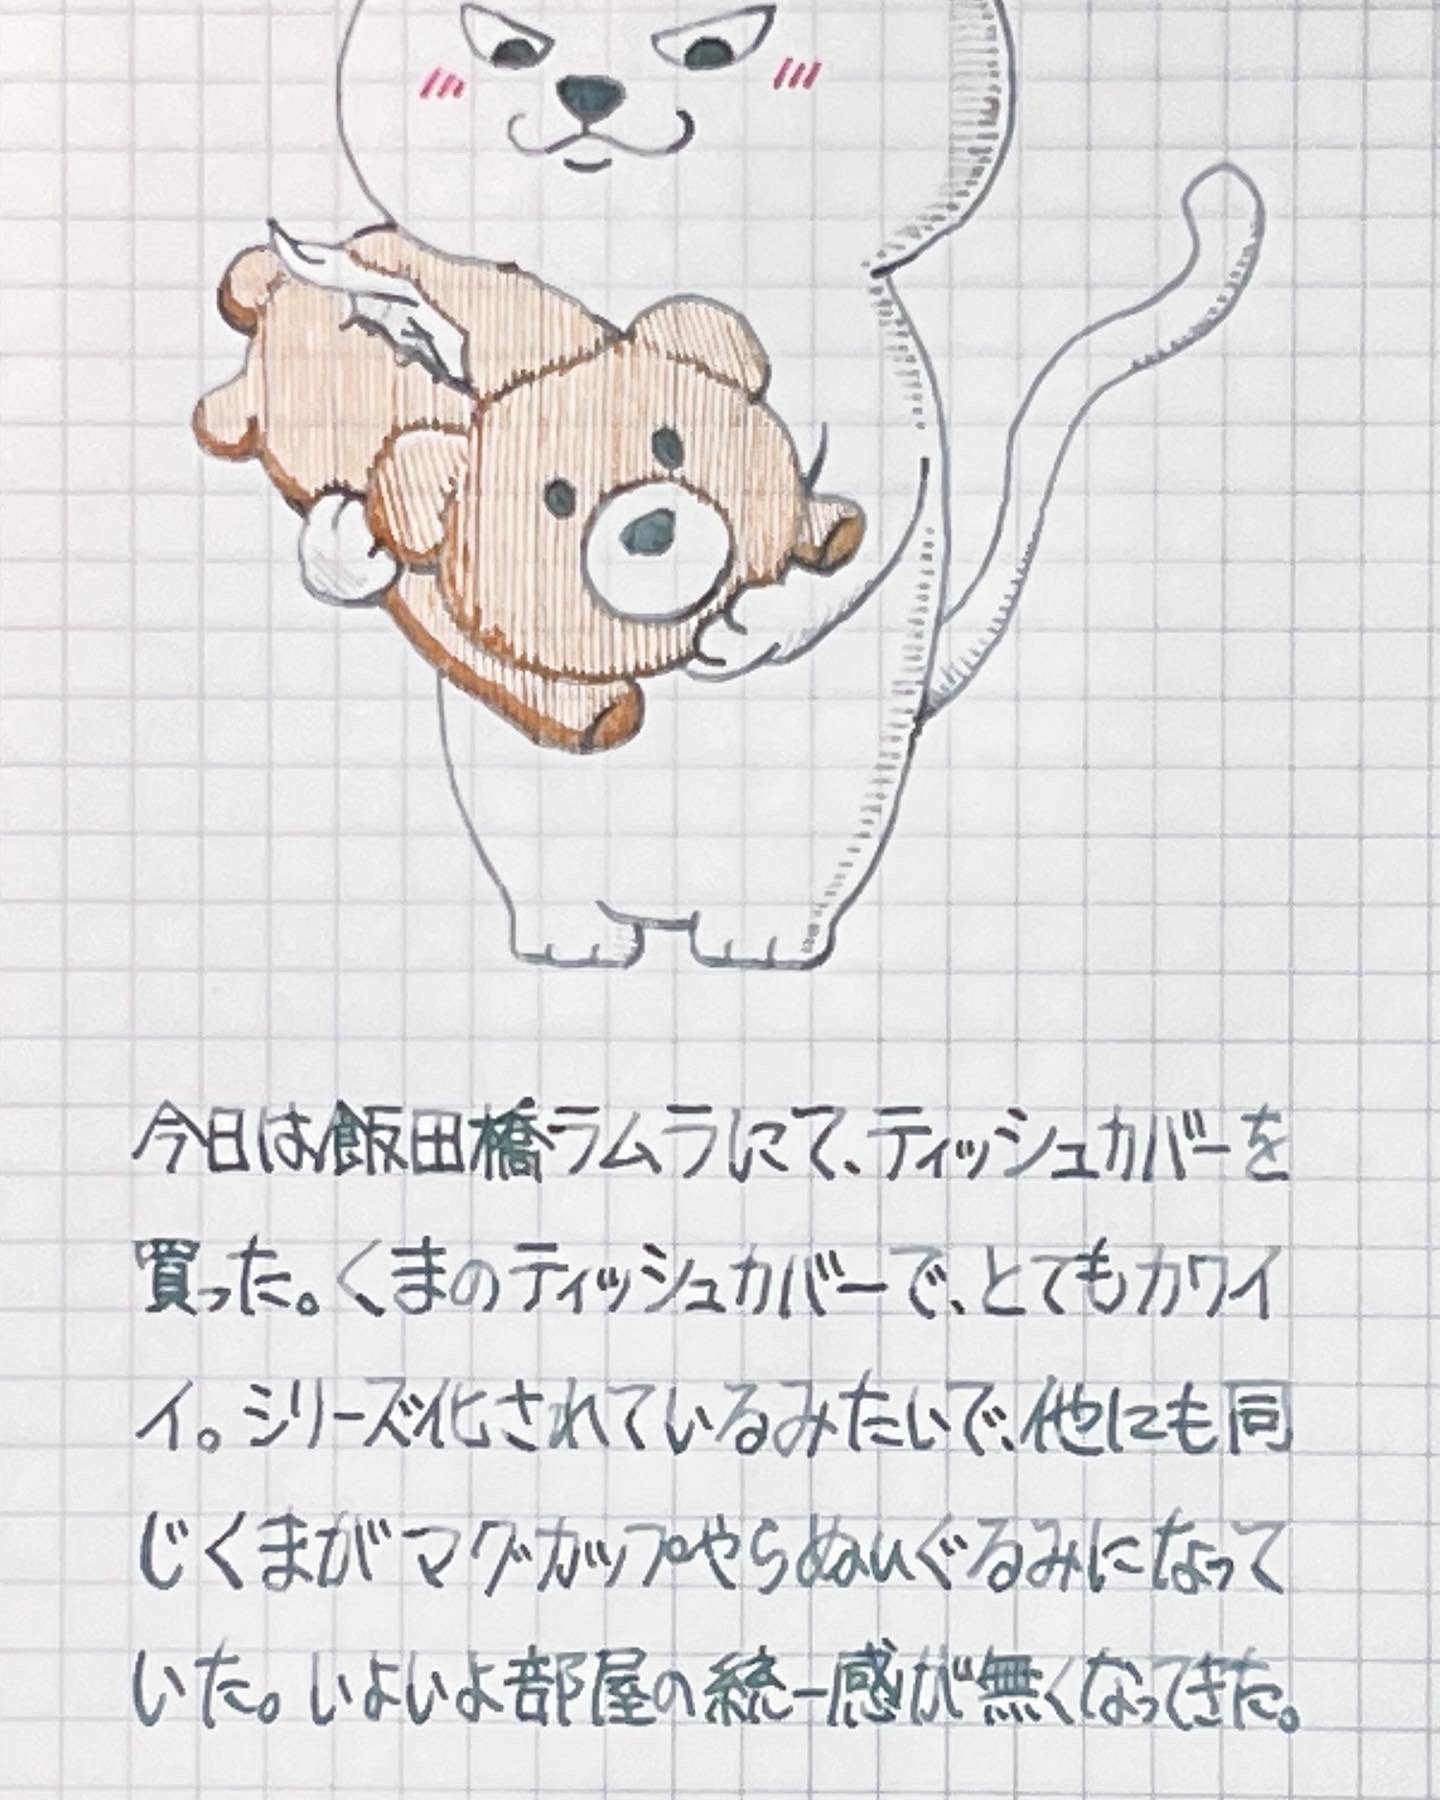 今日は飯田橋ラムラにて、ティッシュカバーを
買った。くまのティッシュカバーで、とてもカワイ
イ。シリーズ化されているみたいで、他にも同
じくまがマグカップやらぬいぐるみになって
いた。いよいよ部屋の統一感が無くなってきた。